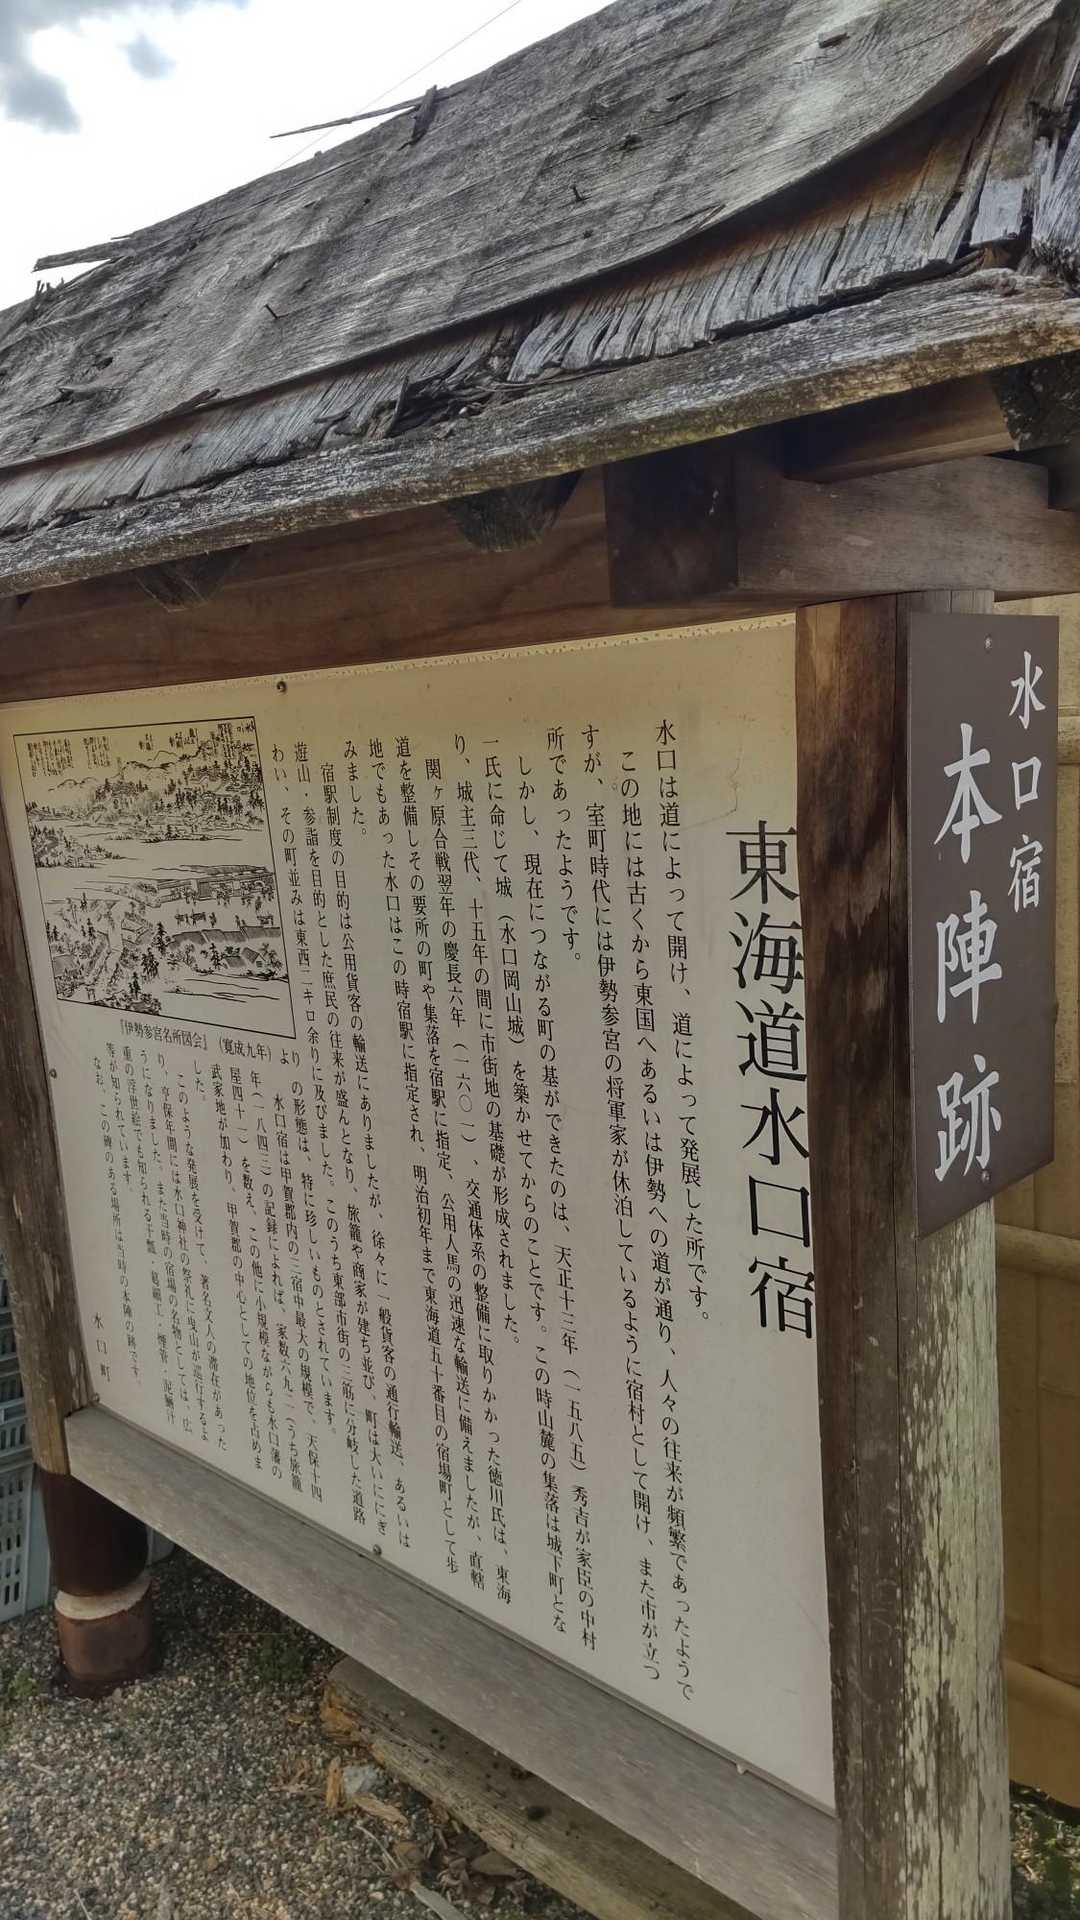 水口宿
本陣跡
東海道水口宿
水口は道によって開け、道によって発展した所です。
この地には古くから東国へあるいは伊勢への道が通り、人々の往来が頻繁であったようで
すが、室町時代には伊勢参宮の将軍家が休泊しているように宿村として開け、また市が立つ
所であったようです。
しかし、現在につながる町の基ができたのは、天正十三年（一五八五）秀吉が家臣の中村
一氏に命じて城（水口岡山城）を築かせてからのことです。この時山麓の集落は城下町とな
り、城主三代、十五年の間に市街地の基礎が形成されました。
関ヶ原合戦翌年の慶長六年（一六〇一）、交通体系の整備に取りかかった徳川氏は、東海
道を整備しその要所の町や集落を宿駅に指定、公用人馬の迅速な輸送に備えましたが、直轄
地でもあった水口はこの時宿駅に指定され、明治初年まで東海道五十番目の宿場町として歩
みました。
宿駅制度の目的は公用貨客の輸送にありましたが、徐々に一般貨客の通行輸送、あるいは
遊山・参詣を目的とした庶民の往来が盛んとなり、旅籠や商家が建ち並び、町は大いににぎ
わい、その町並みは東西二キロ余りに及びました。このうち東部市街の三筋に分岐した道路
の形態は、特に珍しいものとされています。
水口宿は甲賀郡内の三宿中最大の規模で、天保十四
年（一八四三）の記録によれば、家数六九二（うち旅籠
屋四十一）を数え、この他に小規模ながらも水口藩の
武家地が加わり、甲賀郡の中心としての地位を占めま
した。
このような発展を受けて、著名文人の滞在があった
り、享保年間には水口神社の祭礼に曳山が巡行するよ
うになりました。また当時の宿場の名物としては、広
重の浮世絵でも知られる干瓢・葛細工・煙管・泥鰌汁
等が知られています。
なお、この碑のある場所は当時の本陣の跡です。
水口町
『伊勢参宮名所図会』（寛政九年）より